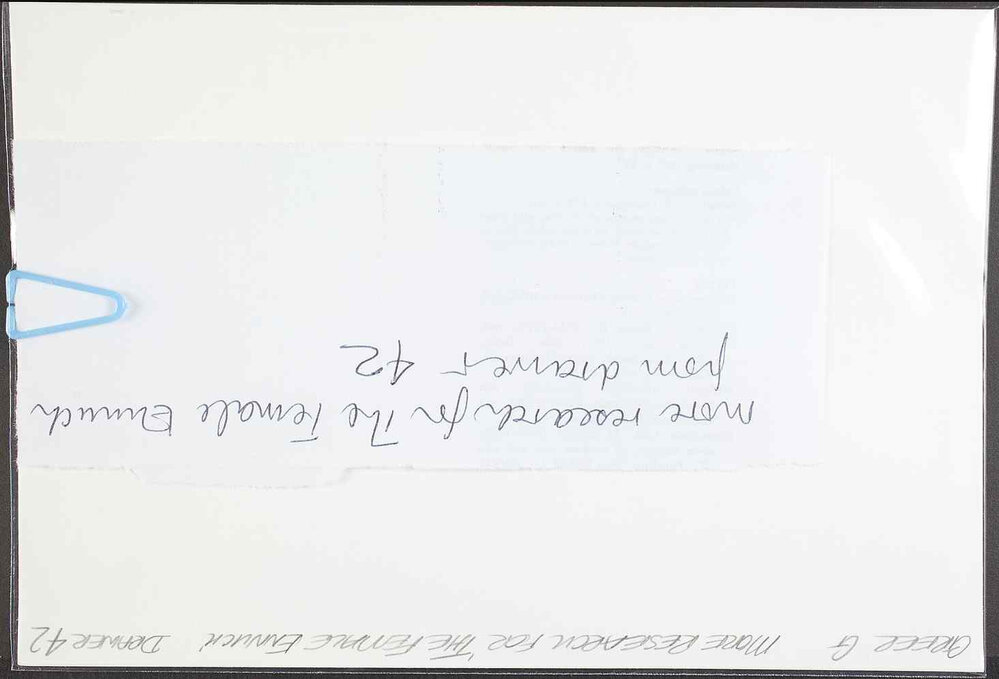 GREER G MORE RESEARCH FOR 'THE FEMALE EUNUCH' DRAWER 42
more research for The Female Eunuch
from drawer 42